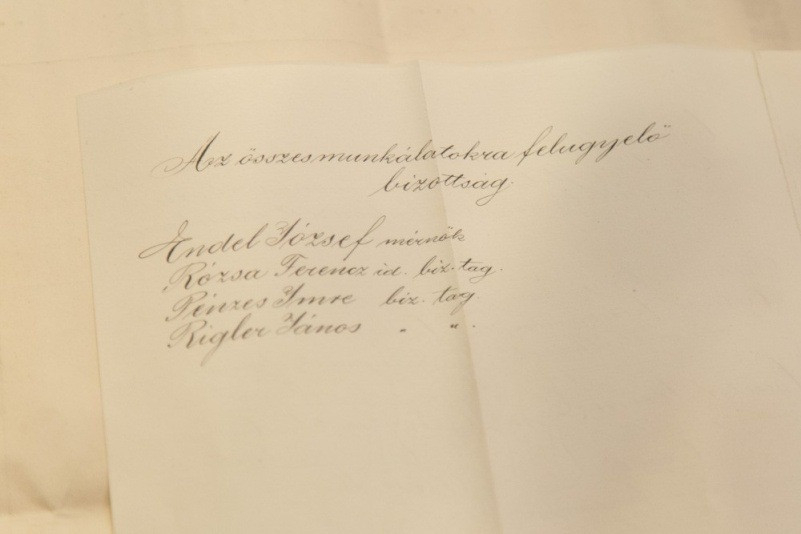 Az összes munkálatokra felugyelő
bizottság.
Endel József mérnök
Rózsa Ferencz id. biz. tag.
Pénzes Imre biz. tag.
Rigler János " ".